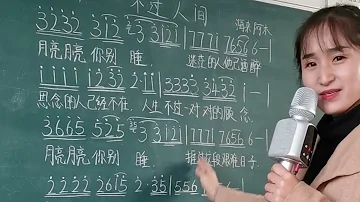 不过人间 海来阿木
3 2 3 2 3 1 2 3 3 1 2 1 | 7 7 7 1 7 6 5 6 6 - |
月亮月亮 你别 睡 迷茫的人他已酒醉
1 1 1 1 1 1 1 2 | 3 3 3 3 3 4 3 2 |
思念的人已经不在 人生不过一对对的
3 6 6 5 5 2 5 3 3 1 2 1 | 7 7 7 1 7 6 5 6 6 - |
月亮月亮 你别 睡 推 段艰难日子
2 2 2 2 2 6 1 5 2 · 3 5 | 5 5 6 6 - |